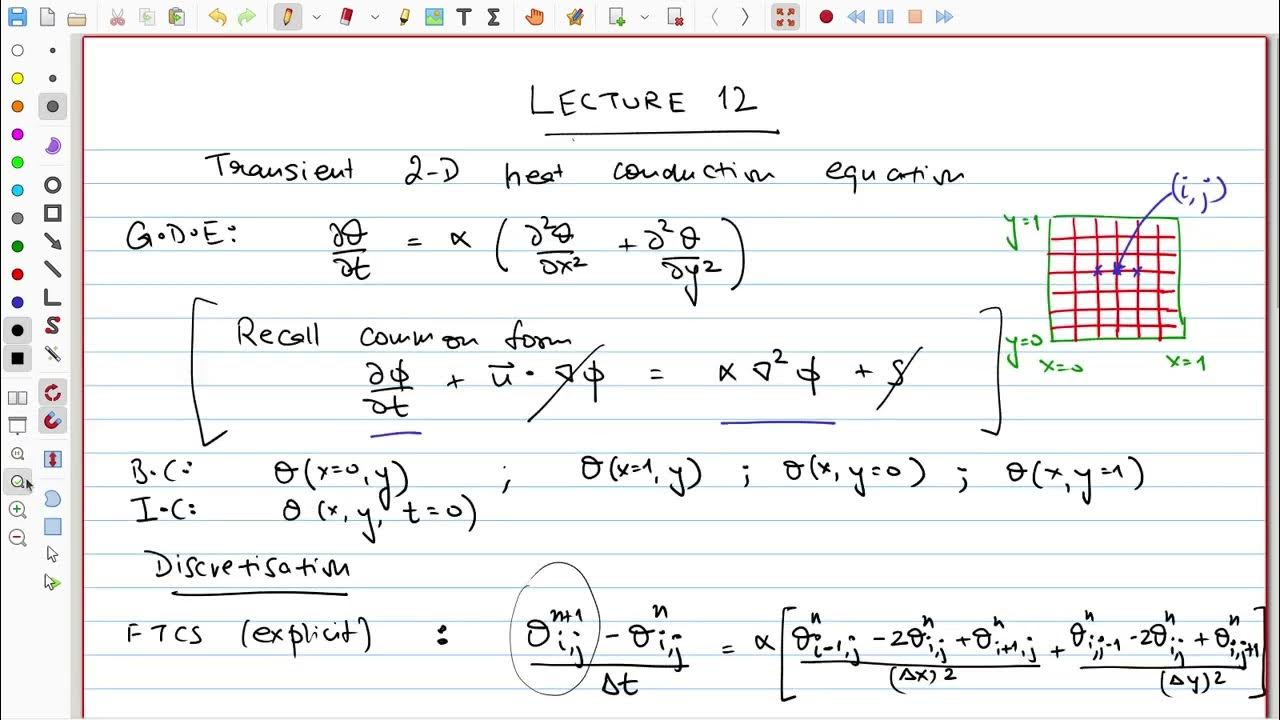 LECTURE 12
Transient 2-D heat conduction equation
(i,j)
G.D.E: ∂θ/∂t = α (∂²θ/∂x² + ∂²θ/∂y²)
y=1
[Recall common form
∂φ/∂t + u⃗ · ∇φ = α ∇²φ + S]
y=0
x=0 x=1
B.C: θ(x=0, y) ; θ(x=1, y) ; θ(x, y=0) ; θ(x, y=1)
I.C: θ(x, y, t=0)
Discretisation
FTCS (explicit) : (θ^{n+1}_{i,j} - θ^n_{i,j})/Δt = α[(θ^n_{i-1,j} - 2θ^n_{i,j} + θ^n_{i+1,j})/(Δx)² + (θ^n_{i,j-1} - 2θ^n_{i,j} + θ^n_{i,j+1})/(Δy)²]